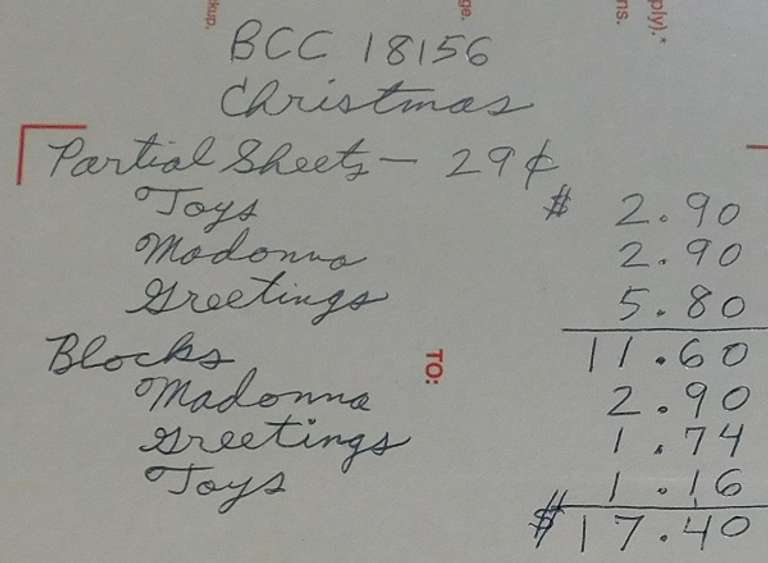 kup.
ge.
ply).*
ns.
BCC 18156
Christmas
Partial Sheets - 29¢
Toys $ 2.90
Madonna 2.90
Greetings 5.80
11.60
Blocks
TO:
Madonna 2.90
Greetings 1.74
Toys 1.16
$17.40